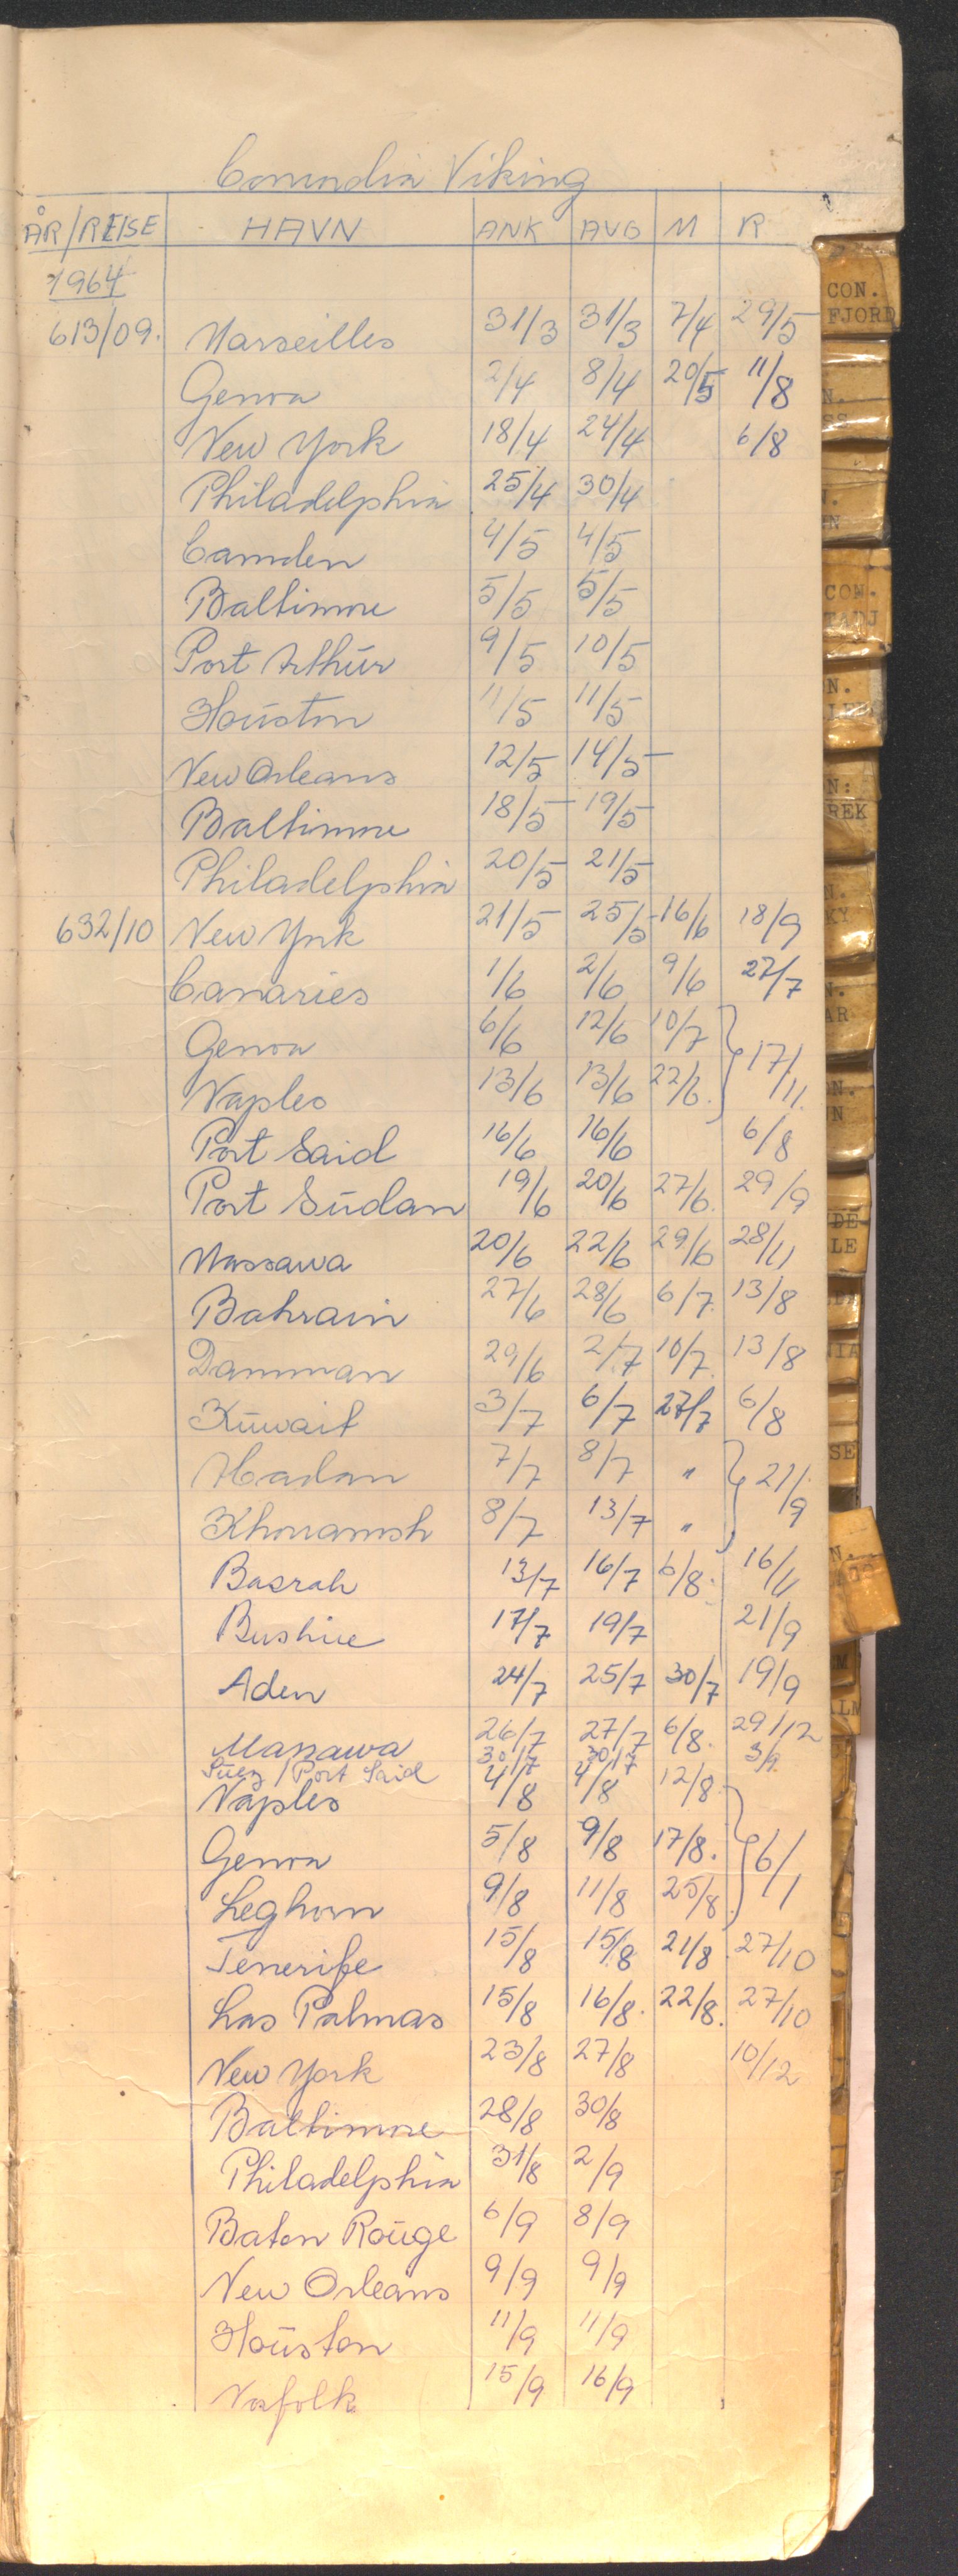 Concordia Viking
ÅR/REISE HAVN ANK AVG M R
1964
613/09. Marseilles 31/3 31/3 7/4 29/5
Genoa 2/4 8/4 20/5 11/8
New York 18/4 24/4 6/8
Philadelphia 25/4 30/4
Camden 4/5 4/5
Baltimore 5/5 5/5
Port Arthur 9/5 10/5
Houston 11/5 11/5
New Orleans 12/5 14/5
Baltimore 18/5 19/5
Philadelphia 20/5 21/5
632/10 New York 21/5 25/5 16/6 18/9
Canaries 1/6 2/6 9/6 27/7
Genoa 6/6 12/6 10/7 } 17/11.
Naples 13/6 13/6 22/6.
Port Said 16/6 16/6 6/8
Port Sudan 19/6 20/6 27/6. 29/9
Massawa 20/6 22/6 29/6 28/11
Bahrain 27/6 28/6 6/7. 13/8
Damman 29/6 2/7 10/7. 13/8
Kuwait 3/7 6/7 27/7 6/8
Abadan 7/7 8/7 " } 21/9
Khorramsh 8/7 13/7 "
Basrah 13/7 16/7 6/8. 16/11
Bushire 17/7 19/7 21/9
Aden 24/7 25/7 30/7 19/9
Massawa 26/7 27/7 6/8. 29/12
Suez / Port Said 30/7 30/7 3/9.
Naples 4/8 4/8 12/8. } 6/1
Genoa 5/8 9/8 17/8.
Leghorn 9/8 11/8 25/8
Tenerife 15/8 15/8 21/8 27/10
Las Palmas 15/8 16/8. 22/8. 27/10
New York 23/8 27/8 10/12
Baltimore 28/8 30/8
Philadelphia 31/8 2/9
Baton Rouge 6/9 8/9
New Orleans 9/9 9/9
Houston 11/9 11/9
Norfolk 15/9 16/9
CON.
FJORD
CON.
TADJ
N.
N:
REK
N.
KY
N.
AR
N.
N
DE
LE
NIA
SE
N.
M
ALM